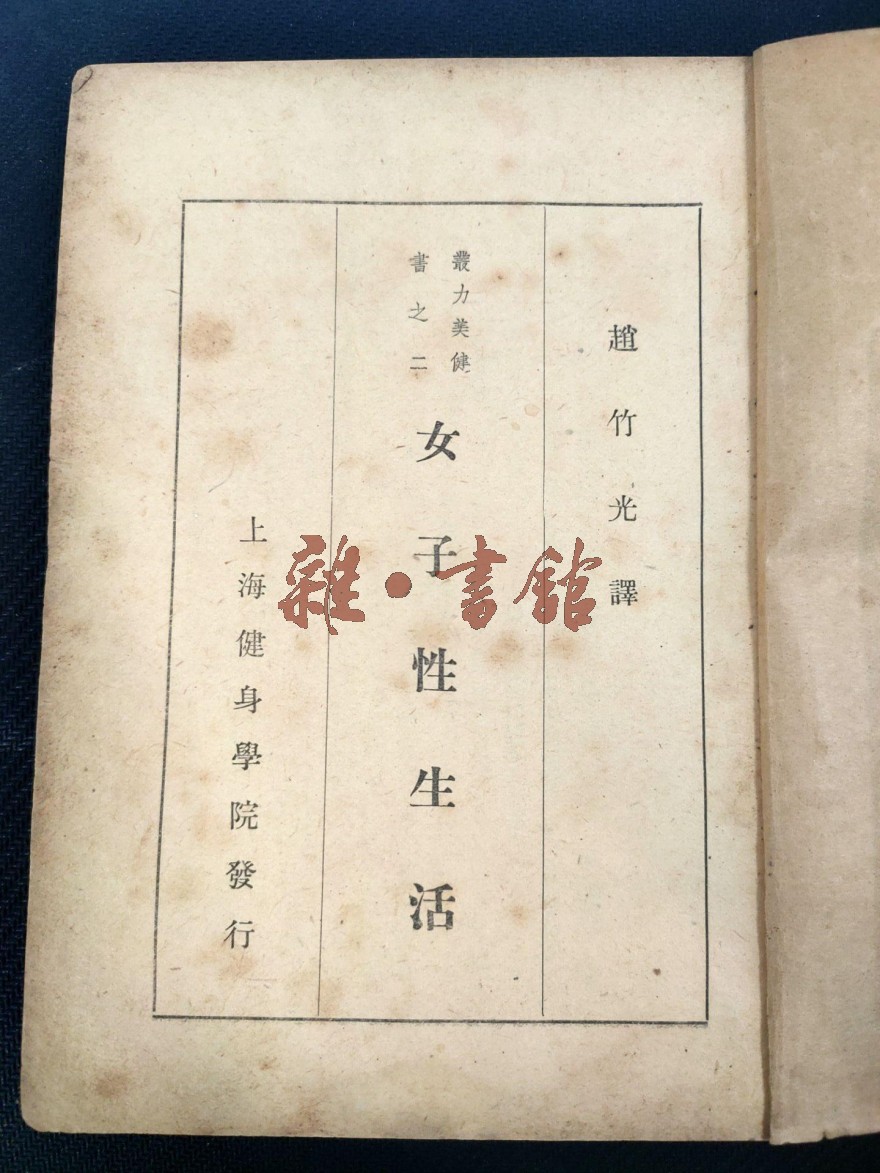 趙竹光譯
叢力美健
書之二
女子性生活
上海健身學院發行
雜·書館